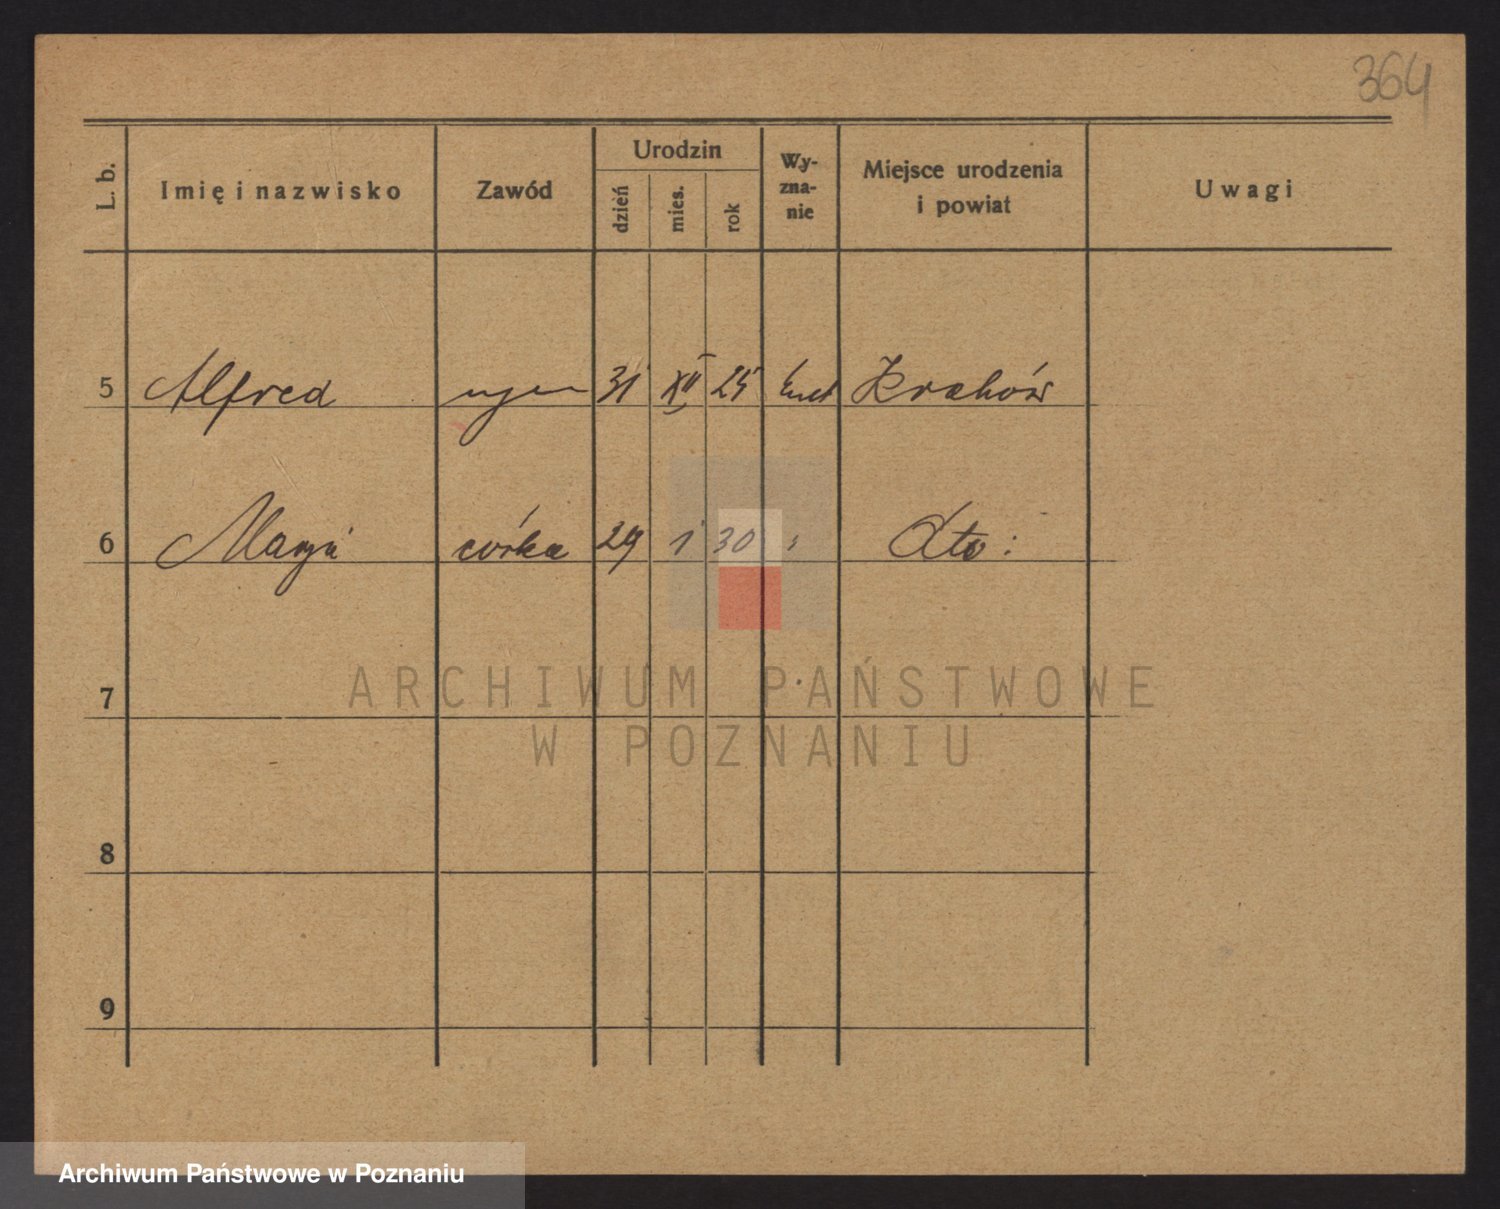 364
L. b. Imię i nazwisko Zawód Urodzin dzień mies. rok Wy-zna-nie Miejsce urodzenia i powiat Uwagi
5 Alfred 31 XII 25 Kraków
6 Marja córka 29 1 30 " Dto:
7
8
9
ARCHIWUM PAŃSTWOWE
W POZNANIU
Archiwum Państwowe w Poznaniu